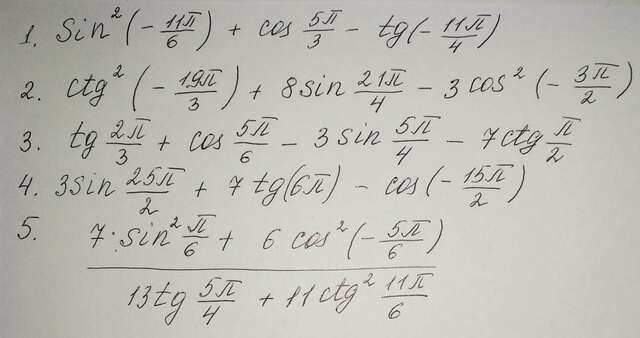 1. Sin²(-11π/6) + cos 5π/3 - tg(-11π/4)
2. ctg²(-19π/3) + 8sin 21π/4 - 3cos²(-3π/2)
3. tg 2π/3 + cos 5π/6 - 3sin 5π/4 - 7ctg π/2
4. 3sin 25π/2 + 7tg(6π) - cos(-15π/2)
5. 7·sin² π/6 + 6cos²(-5π/6)
13tg 5π/4 + 11ctg² 11π/6